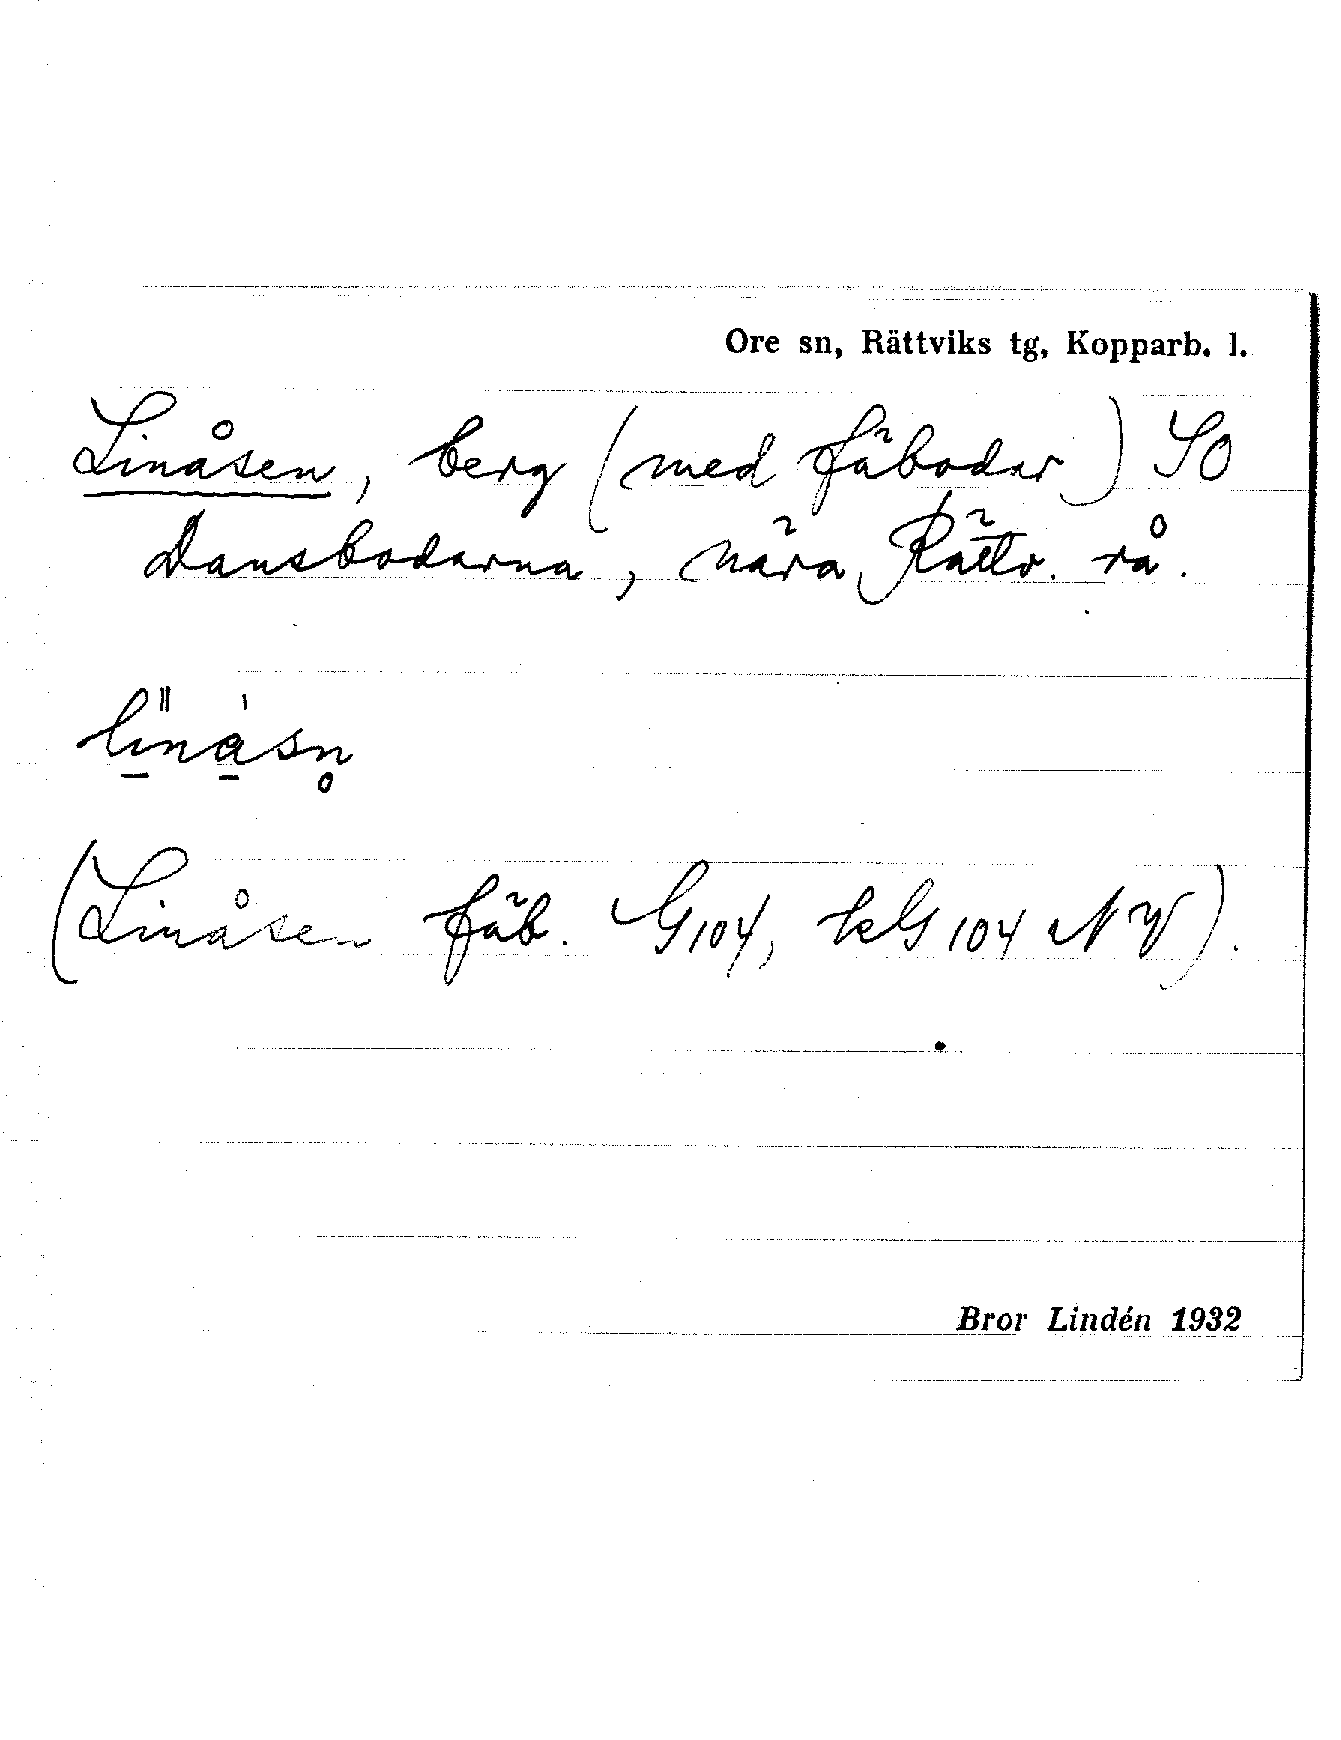 Ore sn, Rättviks tg, Kopparb. l.
Linåsen, berg (med fäbodar) SO
Dansbodarna, nära Rättv. rå.
lìnåsn̥
(Linåsen fäb. G104, kG 104 NV).
Bror Lindén 1932